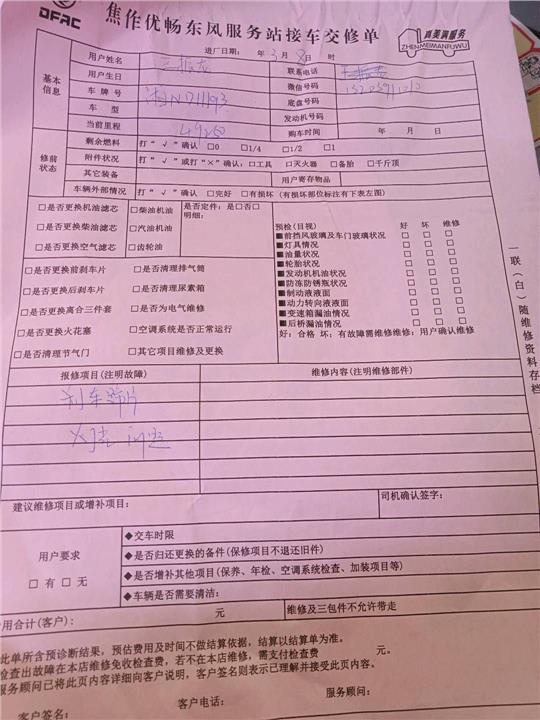 DFAC
焦作优畅东风服务站接车交修单
真美满服务
ZHENMEIMANFUWU
进厂日期： 年 3 月 8 日 时
基本信息
用户姓名 联系电话
用户生日 微信号码
车牌号 底盘号码
车型 发动机号码
当前里程 49260 购车时间 年 月 日
修前状态
剩余燃料 打“√”确认 □0 □1/4 □1/2 □1
附件状况 打“√”或打“×”确认：□工具 □灭火器 □备胎 □千斤顶
其它装备 用户寄存物品
车辆外部情况 打“√”确认 □完好 □有损坏（有损坏部位标注有下表左图）
□是否更换机油滤芯 □柴油机油 是否定件：是□否□
明细：
□是否更换柴油滤芯 □汽油机油
□是否更换空气滤芯 □齿轮油
□是否更换前刹车片 □是否清理排气筒
□是否更换后刹车片 □是否清理尿素箱
□是否更换离合三件套 □是否为电气维修
□是否更换火花塞 □空调系统是否正常运行
□是否清理节气门 □其它项目维修及更换
预检(目视) 好 坏 维修
■前挡风玻璃及车门玻璃状况 □ □ □
■灯具情况 □ □ □
■油量状况 □ □ □
■轮胎状况 □ □ □
■发动机机油状况 □ □ □
■防冻防锈瓶状况 □ □ □
■制动液液面 □ □ □
■动力转向液液面 □ □ □
■变速箱漏油情况 □ □ □
■后桥漏油情况 □ □ □
好：合格 坏：有故障需维修维修：用户确认维修
一联（白）随维修资料存档
报修项目(注明故障) 维修内容(注明维修部件)
刹车蹄片
建议维修项目或增补项目： 司机确认签字：
用户要求
□ 有 □ 无
◆交车时限
◆是否归还更换的备件(保修项目不退还旧件)
◆是否增补其他项目(保养、年检、空调系统检查、加装项目等)
◆车辆是否需要清洁：
费用合计(客户)： 元 维修及三包件不允许带走
此单所含预诊断结果，预估费用及时间不做结算依据，结算以结算单为准。
检查出故障在本店维修免收检查费，若不在本店维修，需支付检查费 元。
服务顾问已将此页内容详细向客户说明，客户签名则表示已理解并接受此页内容。
客户签名： 客户电话： 服务顾问：